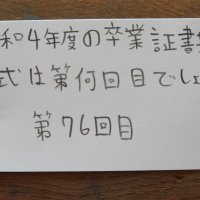 和4年度の卒業証書
式は第何回目でしょ
第76回目